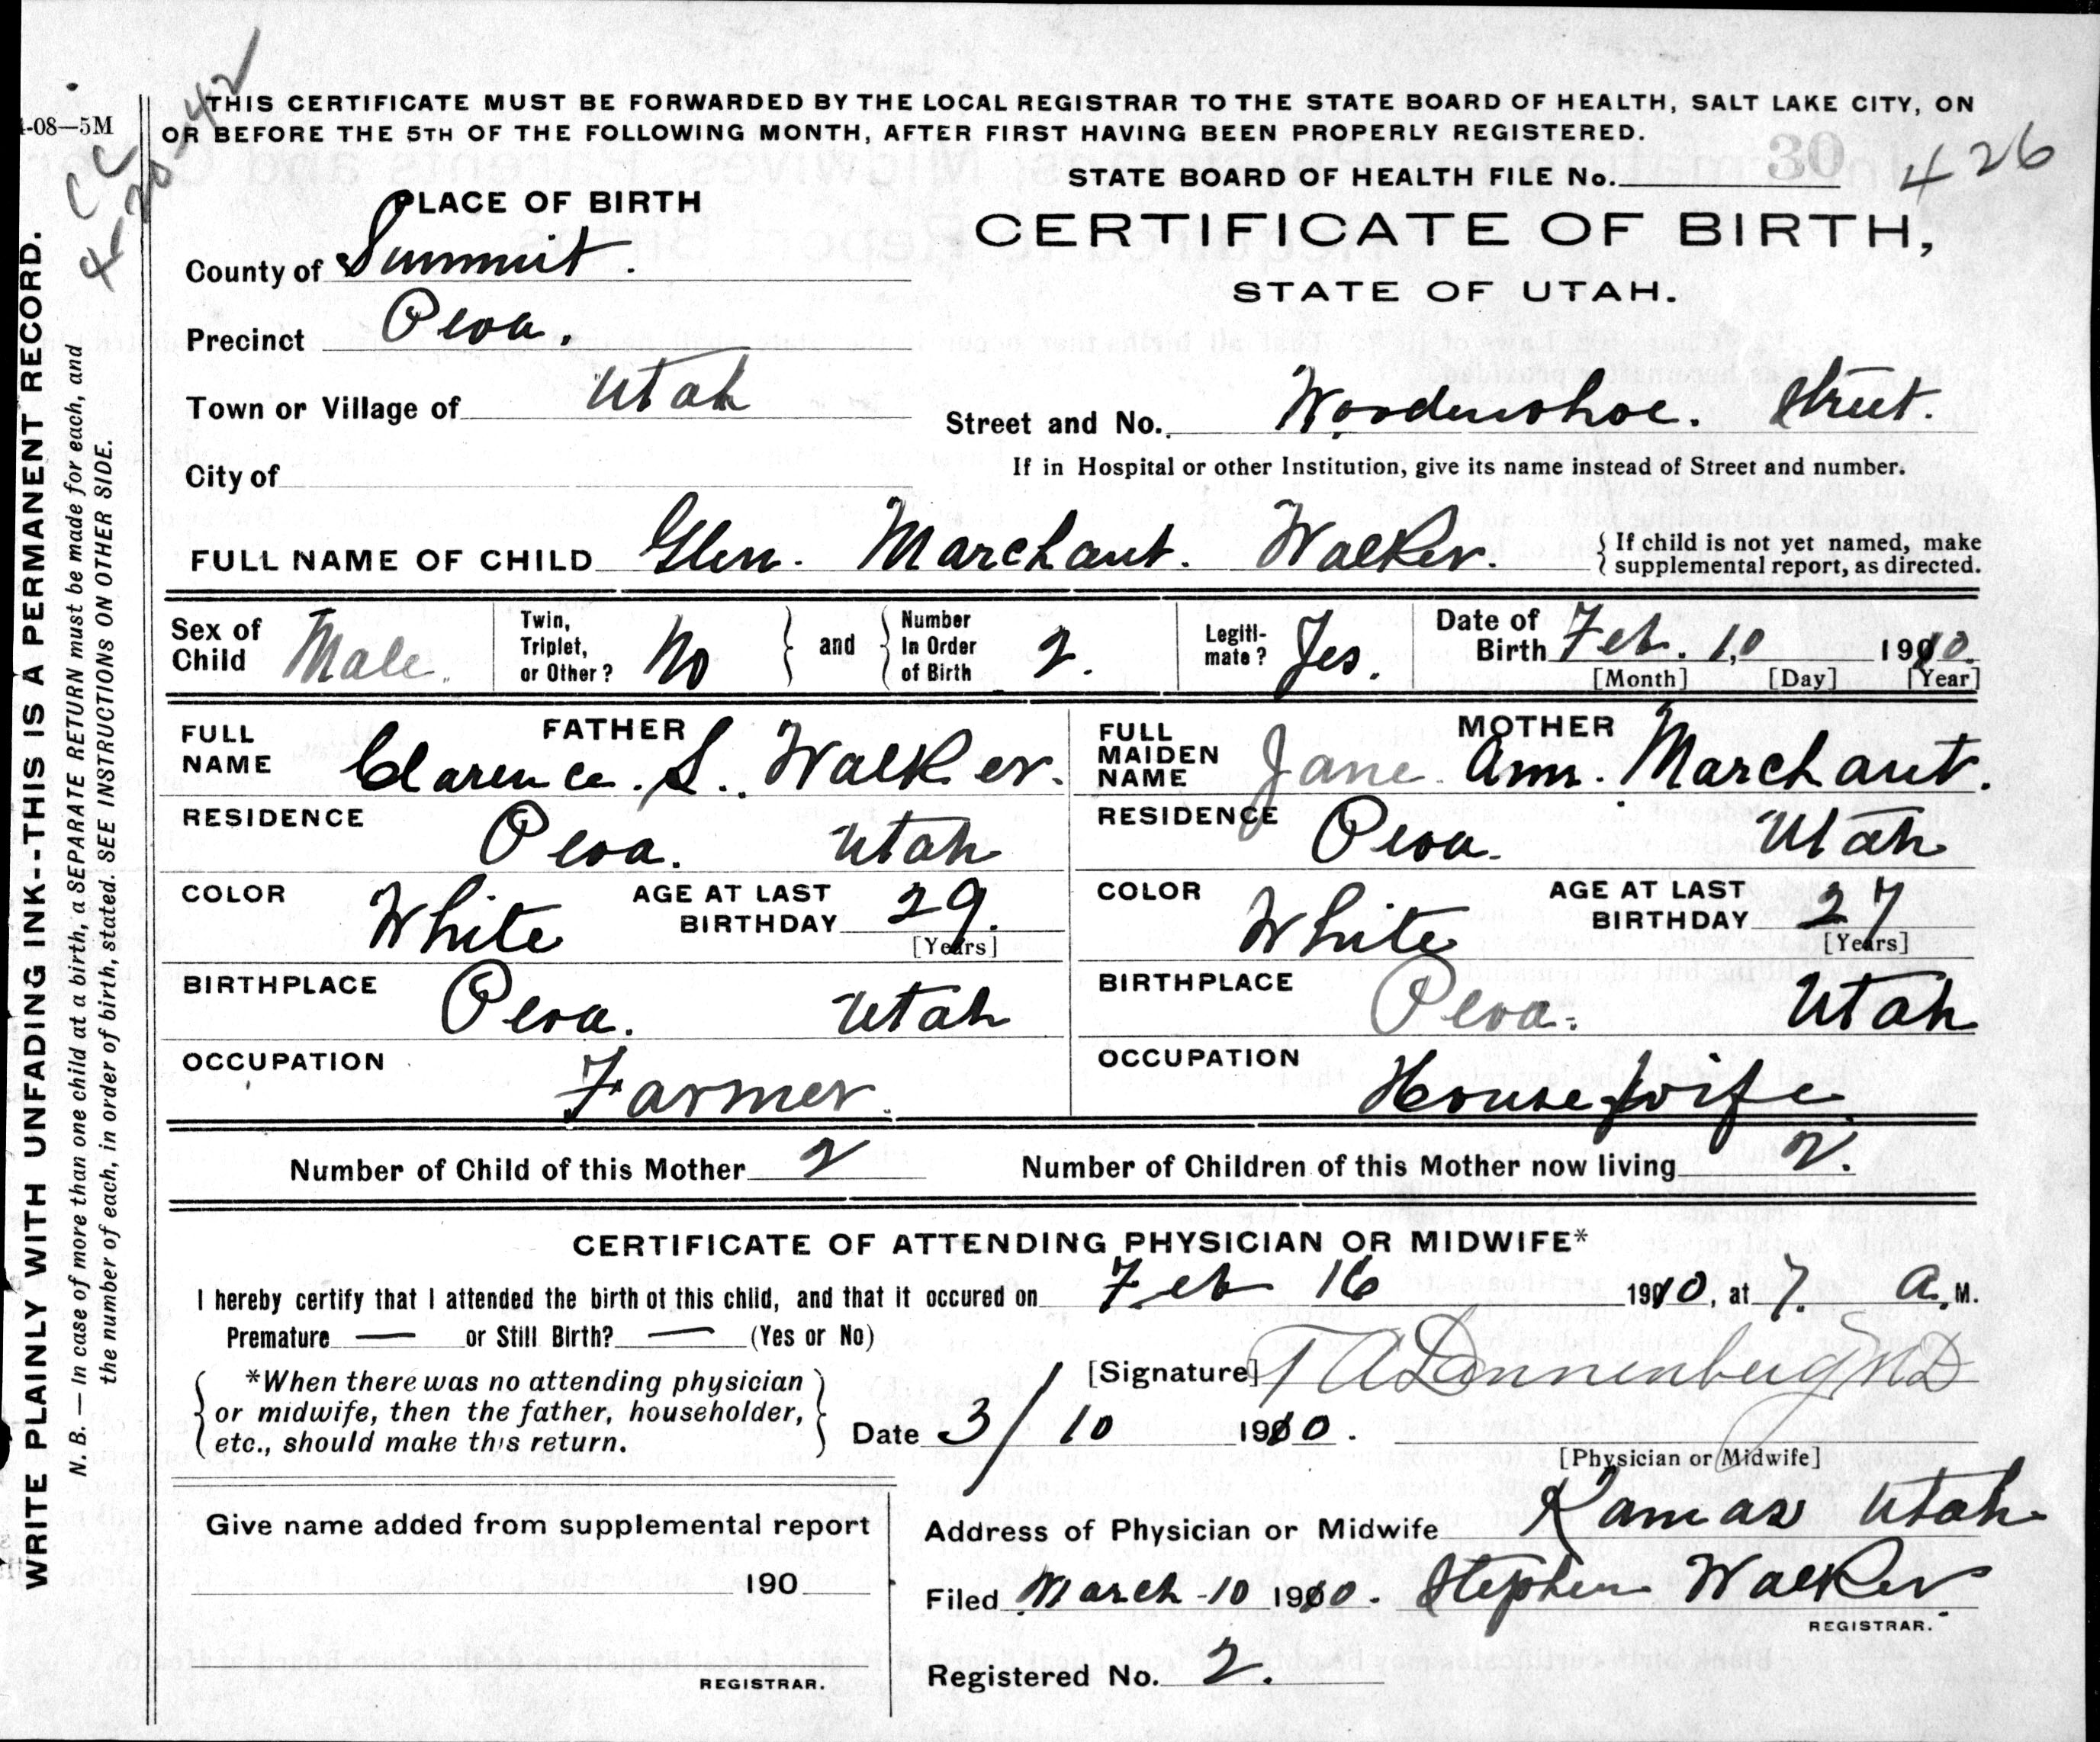 4-20-42
CC
4-08—5M
THIS CERTIFICATE MUST BE FORWARDED BY THE LOCAL REGISTRAR TO THE STATE BOARD OF HEALTH, SALT LAKE CITY, ON
OR BEFORE THE 5TH OF THE FOLLOWING MONTH, AFTER FIRST HAVING BEEN PROPERLY REGISTERED.
STATE BOARD OF HEALTH FILE No. 30 426
PLACE OF BIRTH
CERTIFICATE OF BIRTH,
STATE OF UTAH.
County of Summit.
Precinct Peoa.
Town or Village of Utah
Street and No. Woodenshoe. Street.
City of
If in Hospital or other Institution, give its name instead of Street and number.
FULL NAME OF CHILD Glen. Marchant. Walker.
{ If child is not yet named, make
supplemental report, as directed.
Sex of Child Male.
Twin, Triplet, or Other? No } and { Number In Order of Birth 2.
Legiti-mate? Yes.
Date of Birth Feb. 10 1910.
[Month] [Day] [Year]
FATHER
FULL NAME Clarence. S. Walker.
RESIDENCE Peoa. Utah
COLOR White AGE AT LAST BIRTHDAY 29.
[Years]
BIRTHPLACE Peoa. Utah
OCCUPATION Farmer.
MOTHER
FULL MAIDEN NAME Jane Ann. Marchant.
RESIDENCE Peoa. Utah
COLOR White AGE AT LAST BIRTHDAY 27
[Years]
BIRTHPLACE Peoa. Utah
OCCUPATION Housewife.
Number of Child of this Mother 2 Number of Children of this Mother now living 2.
CERTIFICATE OF ATTENDING PHYSICIAN OR MIDWIFE*
I hereby certify that I attended the birth of this child, and that it occured on Feb 16 1910, at 7. A. M.
Premature — or Still Birth? — (Yes or No)
*When there was no attending physician
or midwife, then the father, householder,
etc., should make this return.
[Signature] T A Dannenberg M D
Date 3/10 1910.
[Physician or Midwife]
Address of Physician or Midwife Kamas Utah
Give name added from supplemental report
190
REGISTRAR.
Filed March-10 1910. Stephen Walker
REGISTRAR.
Registered No. 2.
WRITE PLAINLY WITH UNFADING INK--THIS IS A PERMANENT RECORD.
N. B. — In case of more than one child at a birth, a SEPARATE RETURN must be made for each, and
the number of each, in order of birth, stated. SEE INSTRUCTIONS ON OTHER SIDE.